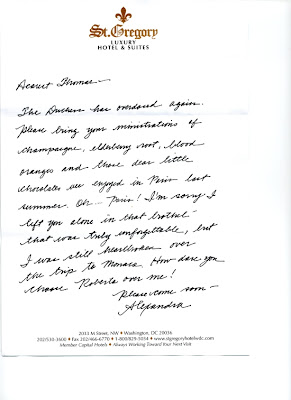 St. Gregory
LUXURY
HOTEL & SUITES
Dearest Thomas—
The Duchess has overdosed again.
Please bring your ministrations of
champagne, elderberry root, blood
oranges and those dear little
chocolates we enjoyed in Paris last
summer. Oh... Paris! I'm sorry I
left you alone in that brothel
that was truly unforgettable, but
I was still heartbroken over
the trip to Monaco. How dare you
choose Roberta over me!
Please come soon—
Alexandra
2033 M Street, NW • Washington, DC 20036
202/530-3600 • Fax 202/466-6770 • 1-800/829-5034 • www.stgregoryhotelwdc.com
Member Capital Hotels • Always Working Toward Your Next Visit